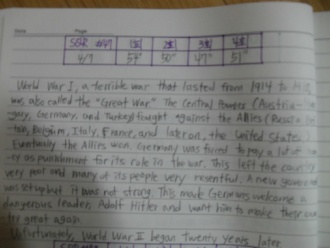 Date Page
SSR #47 1회 2회 3회 4회
4/9 54" 50" 47" 51"
World War I, a terrible war that lasted from 1914 to 1918,
was also called the "Great War." The Central Powers (Austria-
gary, Germany, and Turkey) fought against the Allies (Russia,
tain, Belgium, Italy, France, and later on, the United States
Eventually the Allies won. Germany was forced to pay a lot of
ey as punishment for its role in the war. This left the country
very poor and many of its people very resentful. A new govern
was set up but it was not strong. This made Germans welcome a
dangerous leader, Adolf Hitler and want him to make their coun
try great again.
Unfortunately, World War II began twenty years later